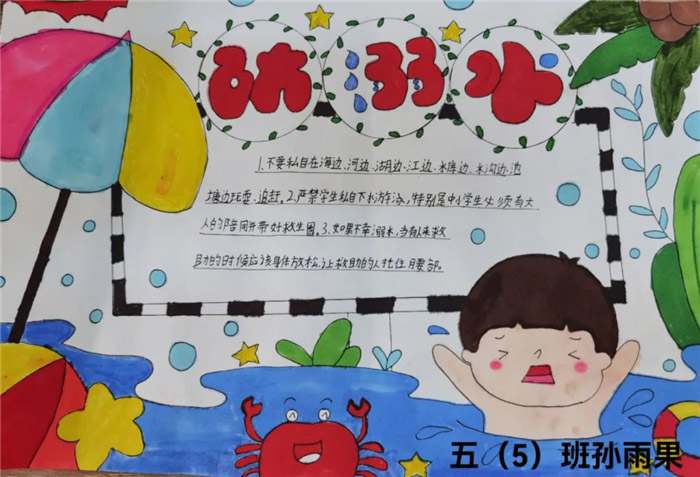 防溺水
1.不要私自在海边、河边、湖边、江边、水库边、水沟边、池
塘边玩耍、追赶。2.严禁学生私自下水游泳,特别是中小学生必须有大
人的陪同并带好救生圈。3.如果不幸溺水,当有人来救
助的时候应该身体放松,让救助的人托住腰部。
五（5）班孙雨果